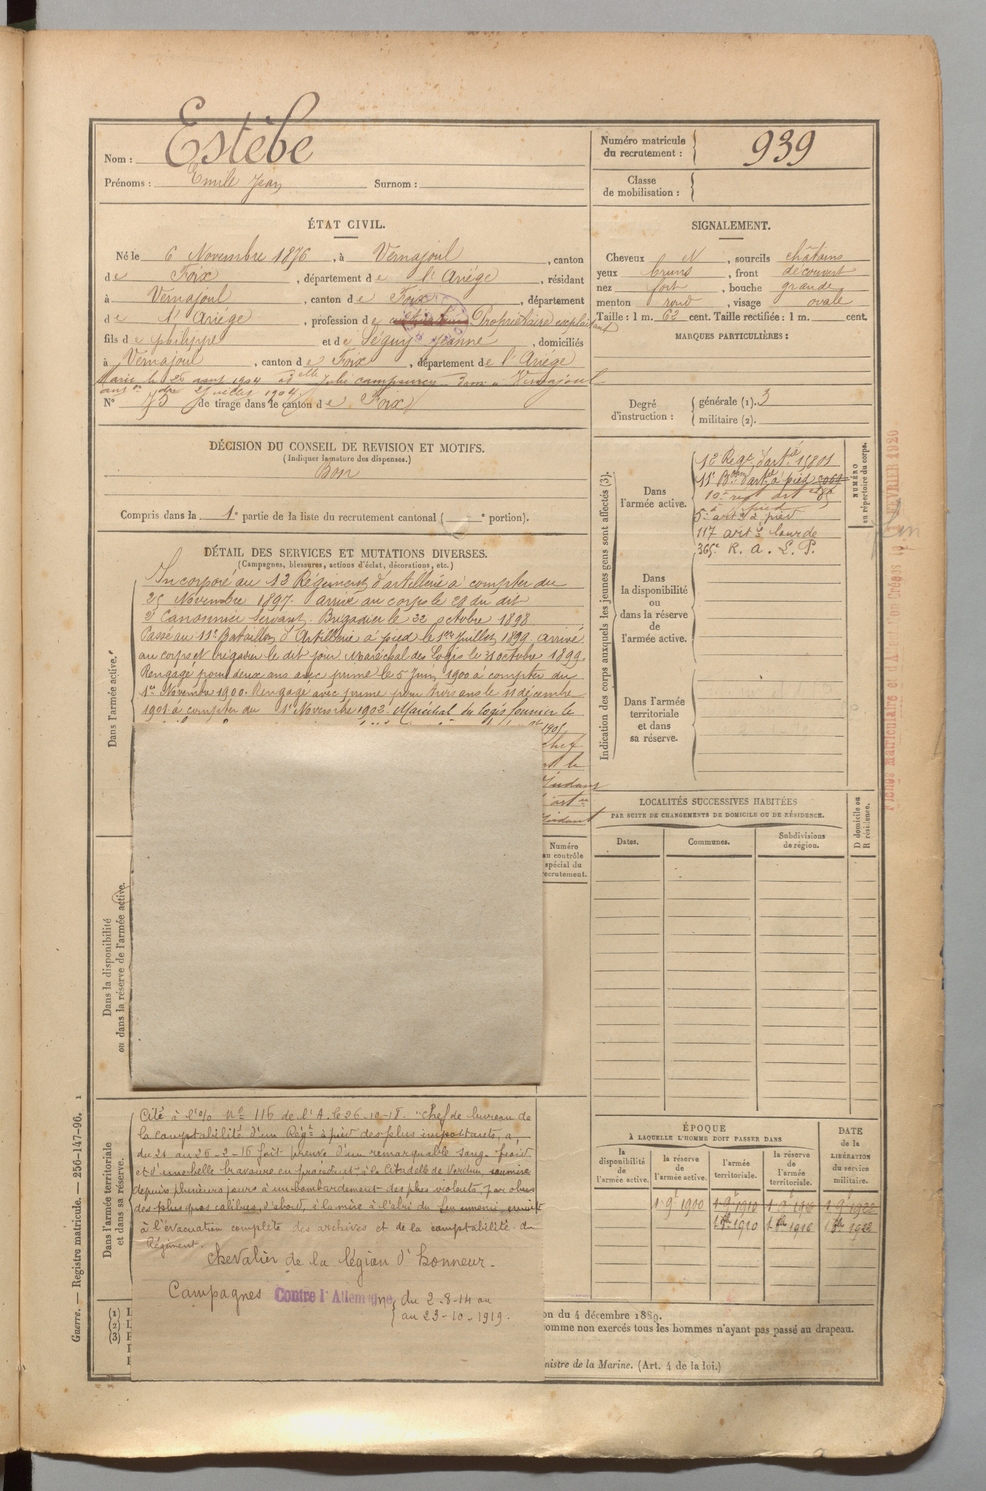 Nom : Estèbe
Prénoms : Emile Jean Surnom :
Numéro matricule du recrutement : 939
Classe de mobilisation :
ÉTAT CIVIL.
Né le 6 Novembre 1876, à Vernajoul, canton
de Foix, département de l'Ariège, résidant
à Vernajoul, canton de Foix, département
de l'Ariège, profession de Propriétaire exploitant
fils de philippe et de Séguy Jeanne, domiciliés
à Vernajoul, canton de Foix, département de l'Ariège
Marié le 26 1904 à dlle Julie dom à Vernajoul
N° 75 de tirage dans le canton de Foix
SIGNALEMENT.
Cheveux N, sourcils châtains
yeux bruns, front découvert
nez fort, bouche grande
menton rond, visage ovale
Taille : 1 m. 62 cent. Taille rectifiée : 1 m. cent.
MARQUES PARTICULIÈRES :
Degré d'instruction : générale (1). 3
militaire (2).
DÉCISION DU CONSEIL DE REVISION ET MOTIFS.
(Indiquer la nature des dispenses.)
Bon
Compris dans la 1e partie de la liste du recrutement cantonal ( e portion).
DÉTAIL DES SERVICES ET MUTATIONS DIVERSES.
(Campagnes, blessures, actions d'éclat, décorations, etc.)
Dans l'armée active.
Incorporé au 12 Régiment d'artillerie à compter du
25 Novembre 1897. arrivé au corps le 20 du dit
2e Canonnier servant. Brigadier le 22 octobre 1898
Passé au 11e Bataillon d'Artillerie à pied le 1er Juillet 1899 arrivé
au corps et brigadier le dit jour Maréchal des Logis le 31 octobre 1899.
Rengagé pour deux ans avec prime le 5 Juin 1900 à compter du
1er Novembre 1900. Rengagé avec prime pour trois ans le 11 décembre
1901 à compter du 1er Novembre 1902 Maréchal des logis fourrier le
Dans la disponibilité
ou dans la réserve de l'armée active.
Numéro
au contrôle
spécial du
recrutement.
Dans l'armée territoriale
et dans sa réserve.
Cité à l'o/o n° 116 de l'A. le 26-10-18. "Chef de bureau de
la comptabilité d'un Régt à pied des plus importants, a,
du 21 au 26-2-16 fait preuve d'un remarquable sang-froid
et d'une belle bravoure en procédant à la Citadelle de Verdun soumise
depuis plusieurs jours à un bombardement des plus violents par obus
des plus gros calibres, d'abord, à la mise à l'abri du feu ennemi, ensuite
à l'évacuation complète des archives et de la comptabilité du
Régiment.
Chevalier de la légion d'honneur.
Campagnes Contre l'Allemagne du 2-8-14 au
au 23-10-1919.
Indication des corps auxquels les jeunes gens sont affectés (3).
NUMÉRO
au répertoire du corps.
Dans
l'armée active.
12 Régt d'artie 15801
11e Bon d'artie à pied
10e
5e artie à pied
117 artie lourde
365e R. A. L. P.
Dans
la disponibilité
ou
dans la réserve
de
l'armée active.
Dans l'armée
territoriale
et dans
sa réserve.
LOCALITÉS SUCCESSIVES HABITÉES
PAR SUITE DE CHANGEMENTS DE DOMICILE OU DE RÉSIDENCE.
Dates.
Communes.
Subdivisions
de région.
D domicile ou
R résidence.
ÉPOQUE
À LAQUELLE L'HOMME DOIT PASSER DANS
la disponibilité de l'armée active.
la réserve de l'armée active.
l'armée territoriale.
la réserve de l'armée territoriale.
DATE de la LIBÉRATION du service militaire.
1 9e 1900
Guerre. — Registre matricule. — 256-147-96.
(1)
(2)
(3)
on du 4 décembre 1889.
omme non exercés tous les hommes n'ayant pas passé au drapeau.
nistre de la Marine. (Art. 4 de la loi.)